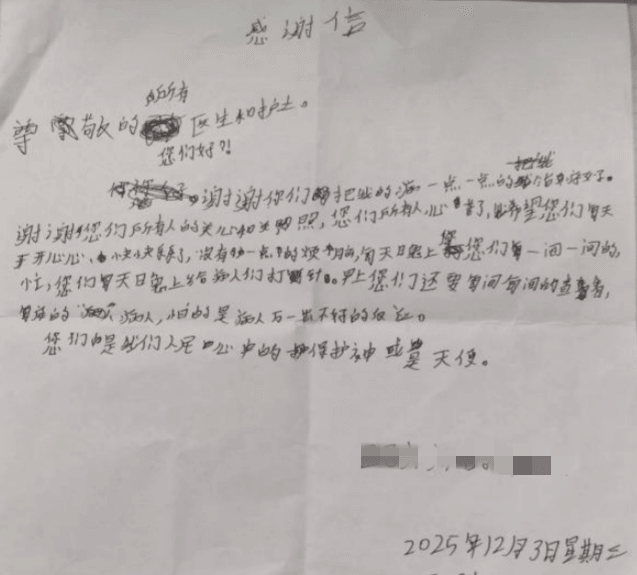 感谢信
所有
尊敬的医生和护士。
您们好?!
谢谢你们把我的病一点一点的治好了。
谢谢您们所有人的关心和关照,您们所有人心善了,希望您们每天
开开心心、快快乐乐,没有一点的烦恼,每天日晚上您们一间一间的
忙,您们每天日晚上给病人们打针。早上您们还要每间每间的查看,
病人,怕的是病人万一出不好的反应。
您们是我们人民心中的保护神或是天使。
2025年12月3日星期三